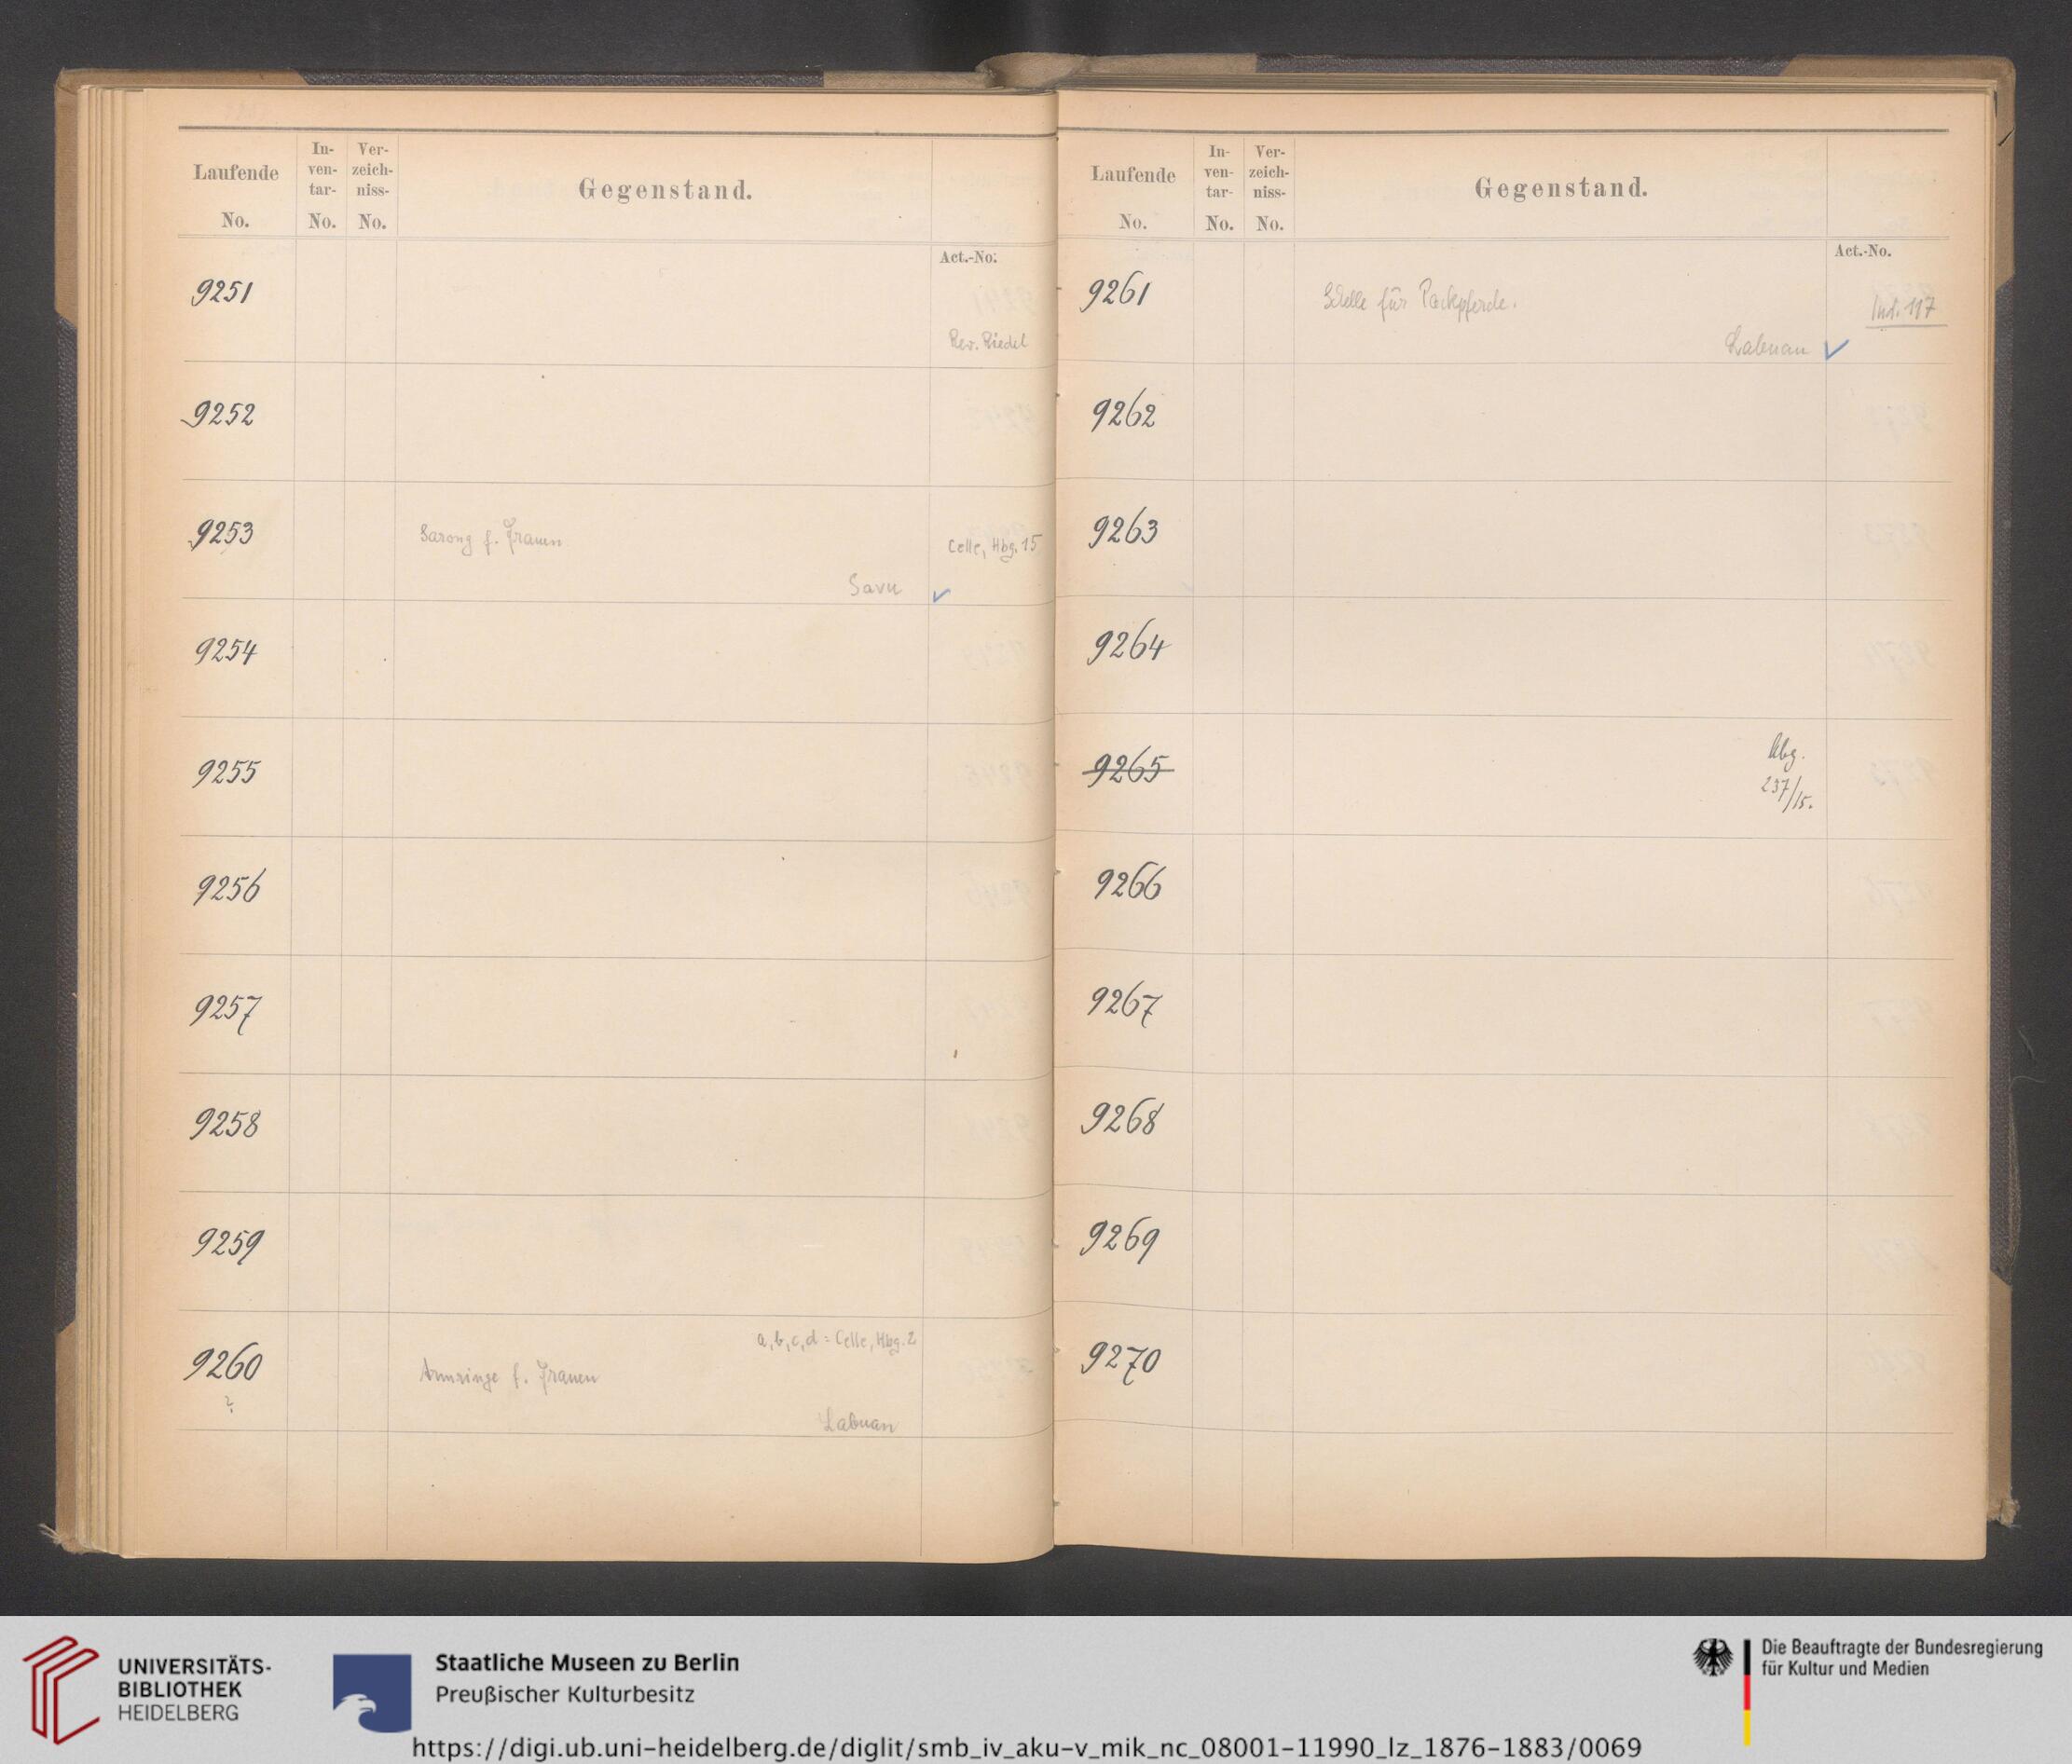 Laufende No.
In-ven-tar- No.
Ver-zeich-niss- No.
Gegenstand.
Act.-No.
9251
Rev. Riedel
9252
9253
Sarong f. Frauen
Celle, Hbg. 15
Savu ✓
9254
9255
9256
9257
9258
9259
9260
?
a, b, c, d = Celle, Hbg. 2
Armringe f. Frauen
Labuan
Laufende No.
In-ven-tar- No.
Ver-zeich-niss- No.
Gegenstand.
Act.-No.
9261
Schelle für Packpferde.
Ind. 117
Labuan ✓
9262
9263
9264
9265
Abg.
237/15.
9266
9267
9268
9269
9270
UNIVERSITÄTS-
BIBLIOTHEK
HEIDELBERG
Staatliche Museen zu Berlin
Preußischer Kulturbesitz
Die Beauftragte der Bundesregierung
für Kultur und Medien
https://digi.ub.uni-heidelberg.de/diglit/smb_iv_aku-v_mik_nc_08001-11990_lz_1876-1883/0069